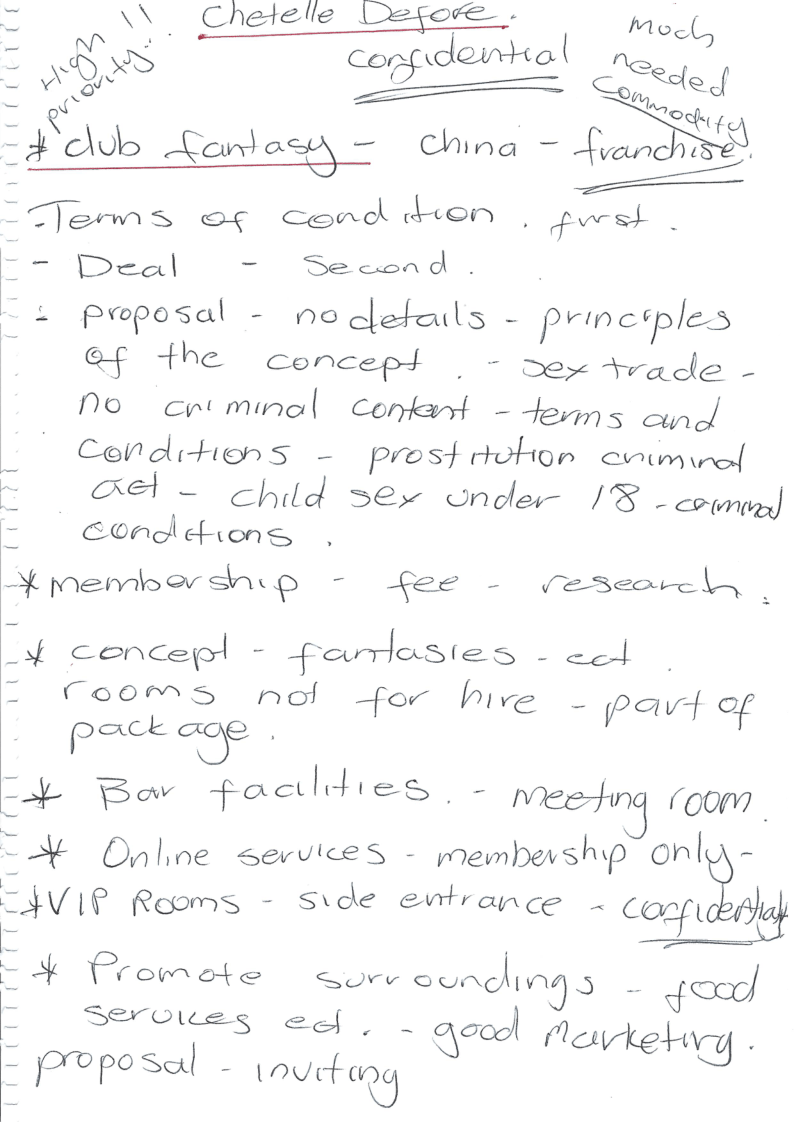 Chetelle Defore.
confidential
High !!
priority..
much
needed
commodity
* club fantasy - china - franchise.
- Terms of condition . first .
- Deal - Second .
- proposal - no details - principles
of the concept . - sex trade -
no criminal content - terms and
conditions - prostitution criminal
act - child sex under 18 - criminal
conditions .
* membership - fee - research .
* concept - fantasies - ect .
rooms not for hire - part of
package .
* Bar facilities . - meeting room .
* Online services - membership only -
* VIP Rooms - side entrance - confidential
* Promote surroundings - food
services ect . - good marketing .
proposal - inviting